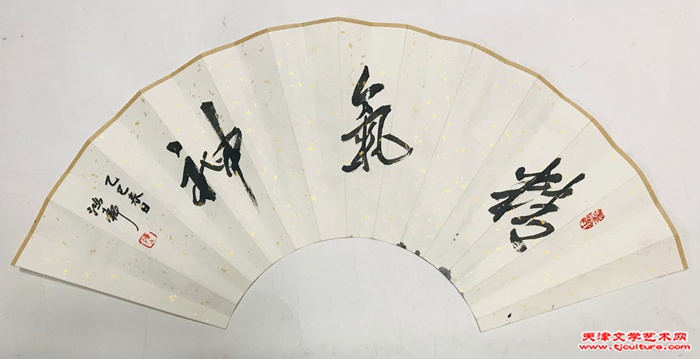 精
氣
神
乙巳春日
天津文学艺术网
www.tjculture.com